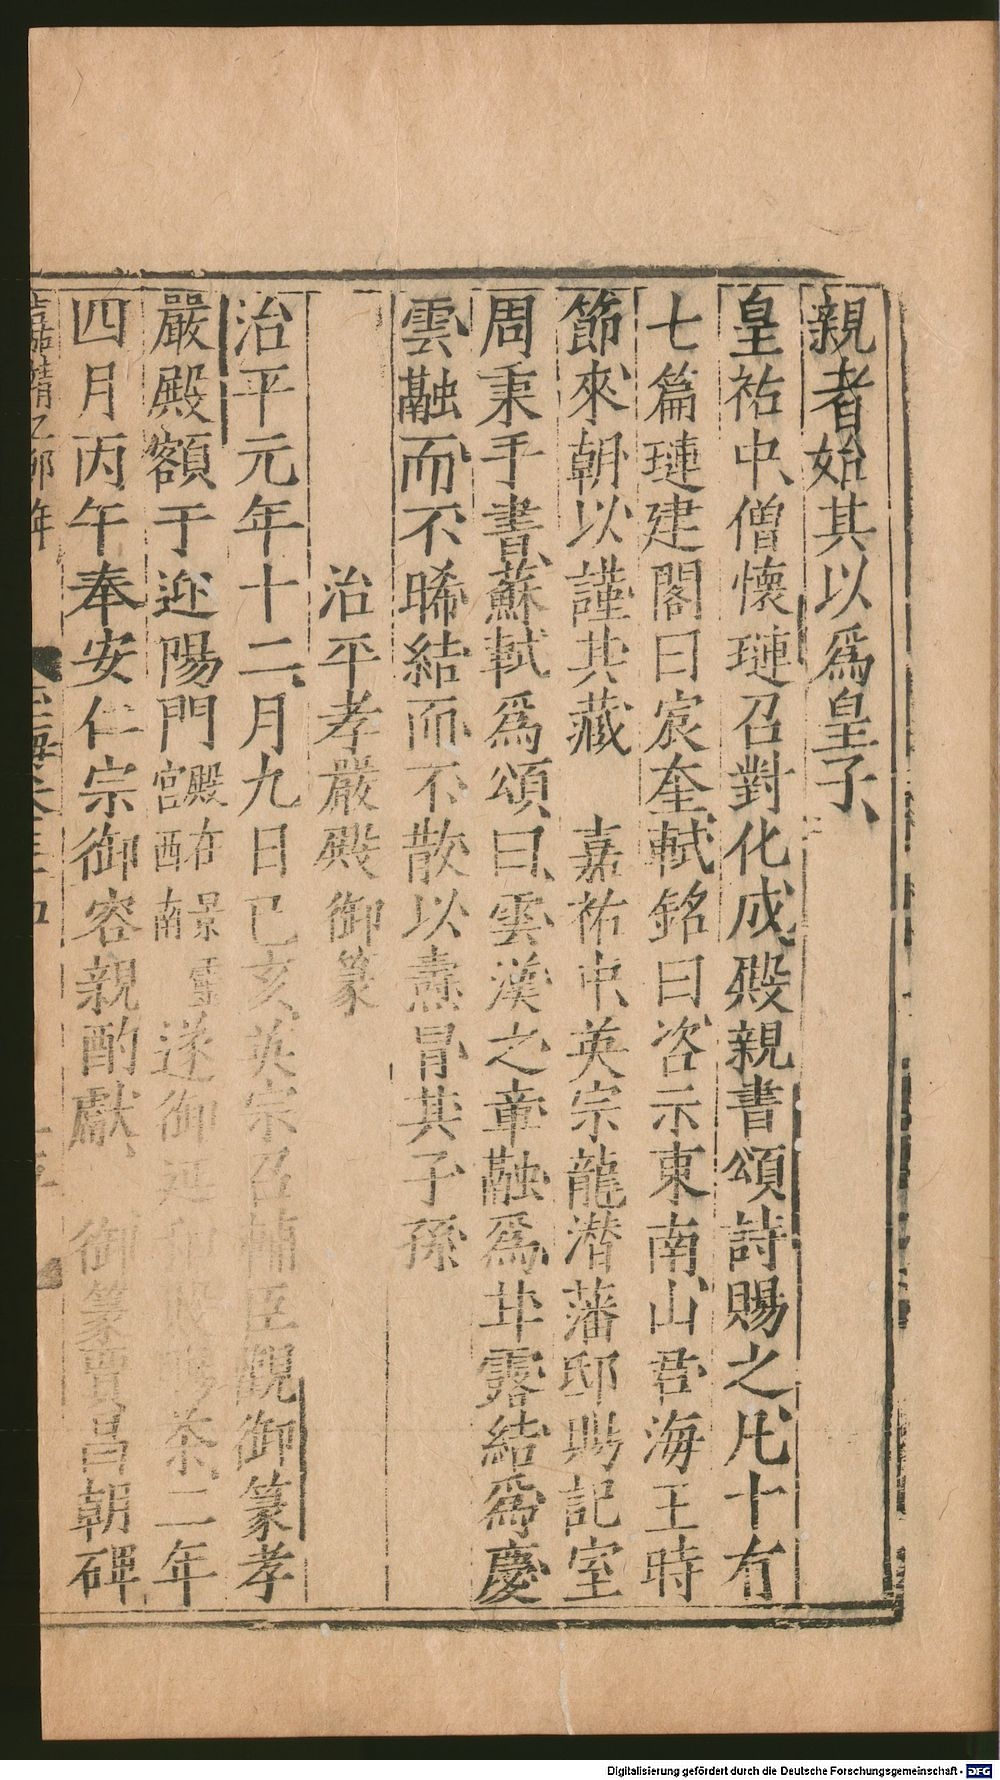 親者始其以爲皇子
皇祐中僧懷璉召對化成殿親書頌詩賜之凡十有
七篇璉建閣曰宸奎軾銘曰咨示東南山君海王時
節來朝以謹其藏　嘉祐中英宗龍潛藩邸賜記室
周秉手書蘇軾爲頌曰雲漢之章融爲甘露結爲慶
雲融而不晞結而不散以燾冒其子孫
治平孝嚴殿御篆
治平元年十二月九日己亥英宗召輔臣觀御篆孝
嚴殿額于迎陽門殿在景靈宮西南遂御延和殿賜茶二年
四月丙午奉安仁宗御容親酌獻　御篆賈昌朝碑
乙卯年
Digitalisierung gefördert durch die Deutsche Forschungsgemeinschaft - DFG